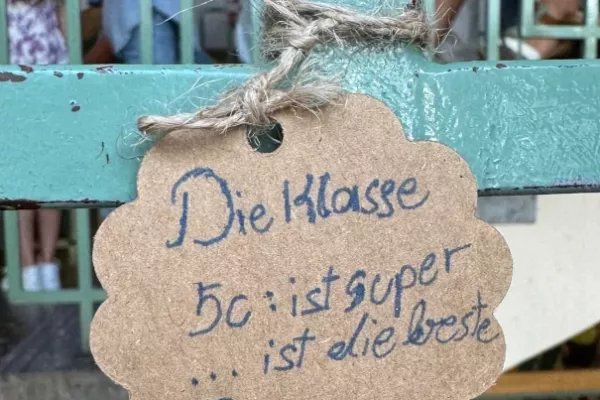 Die Klasse
5c: ist super
... ist die beste